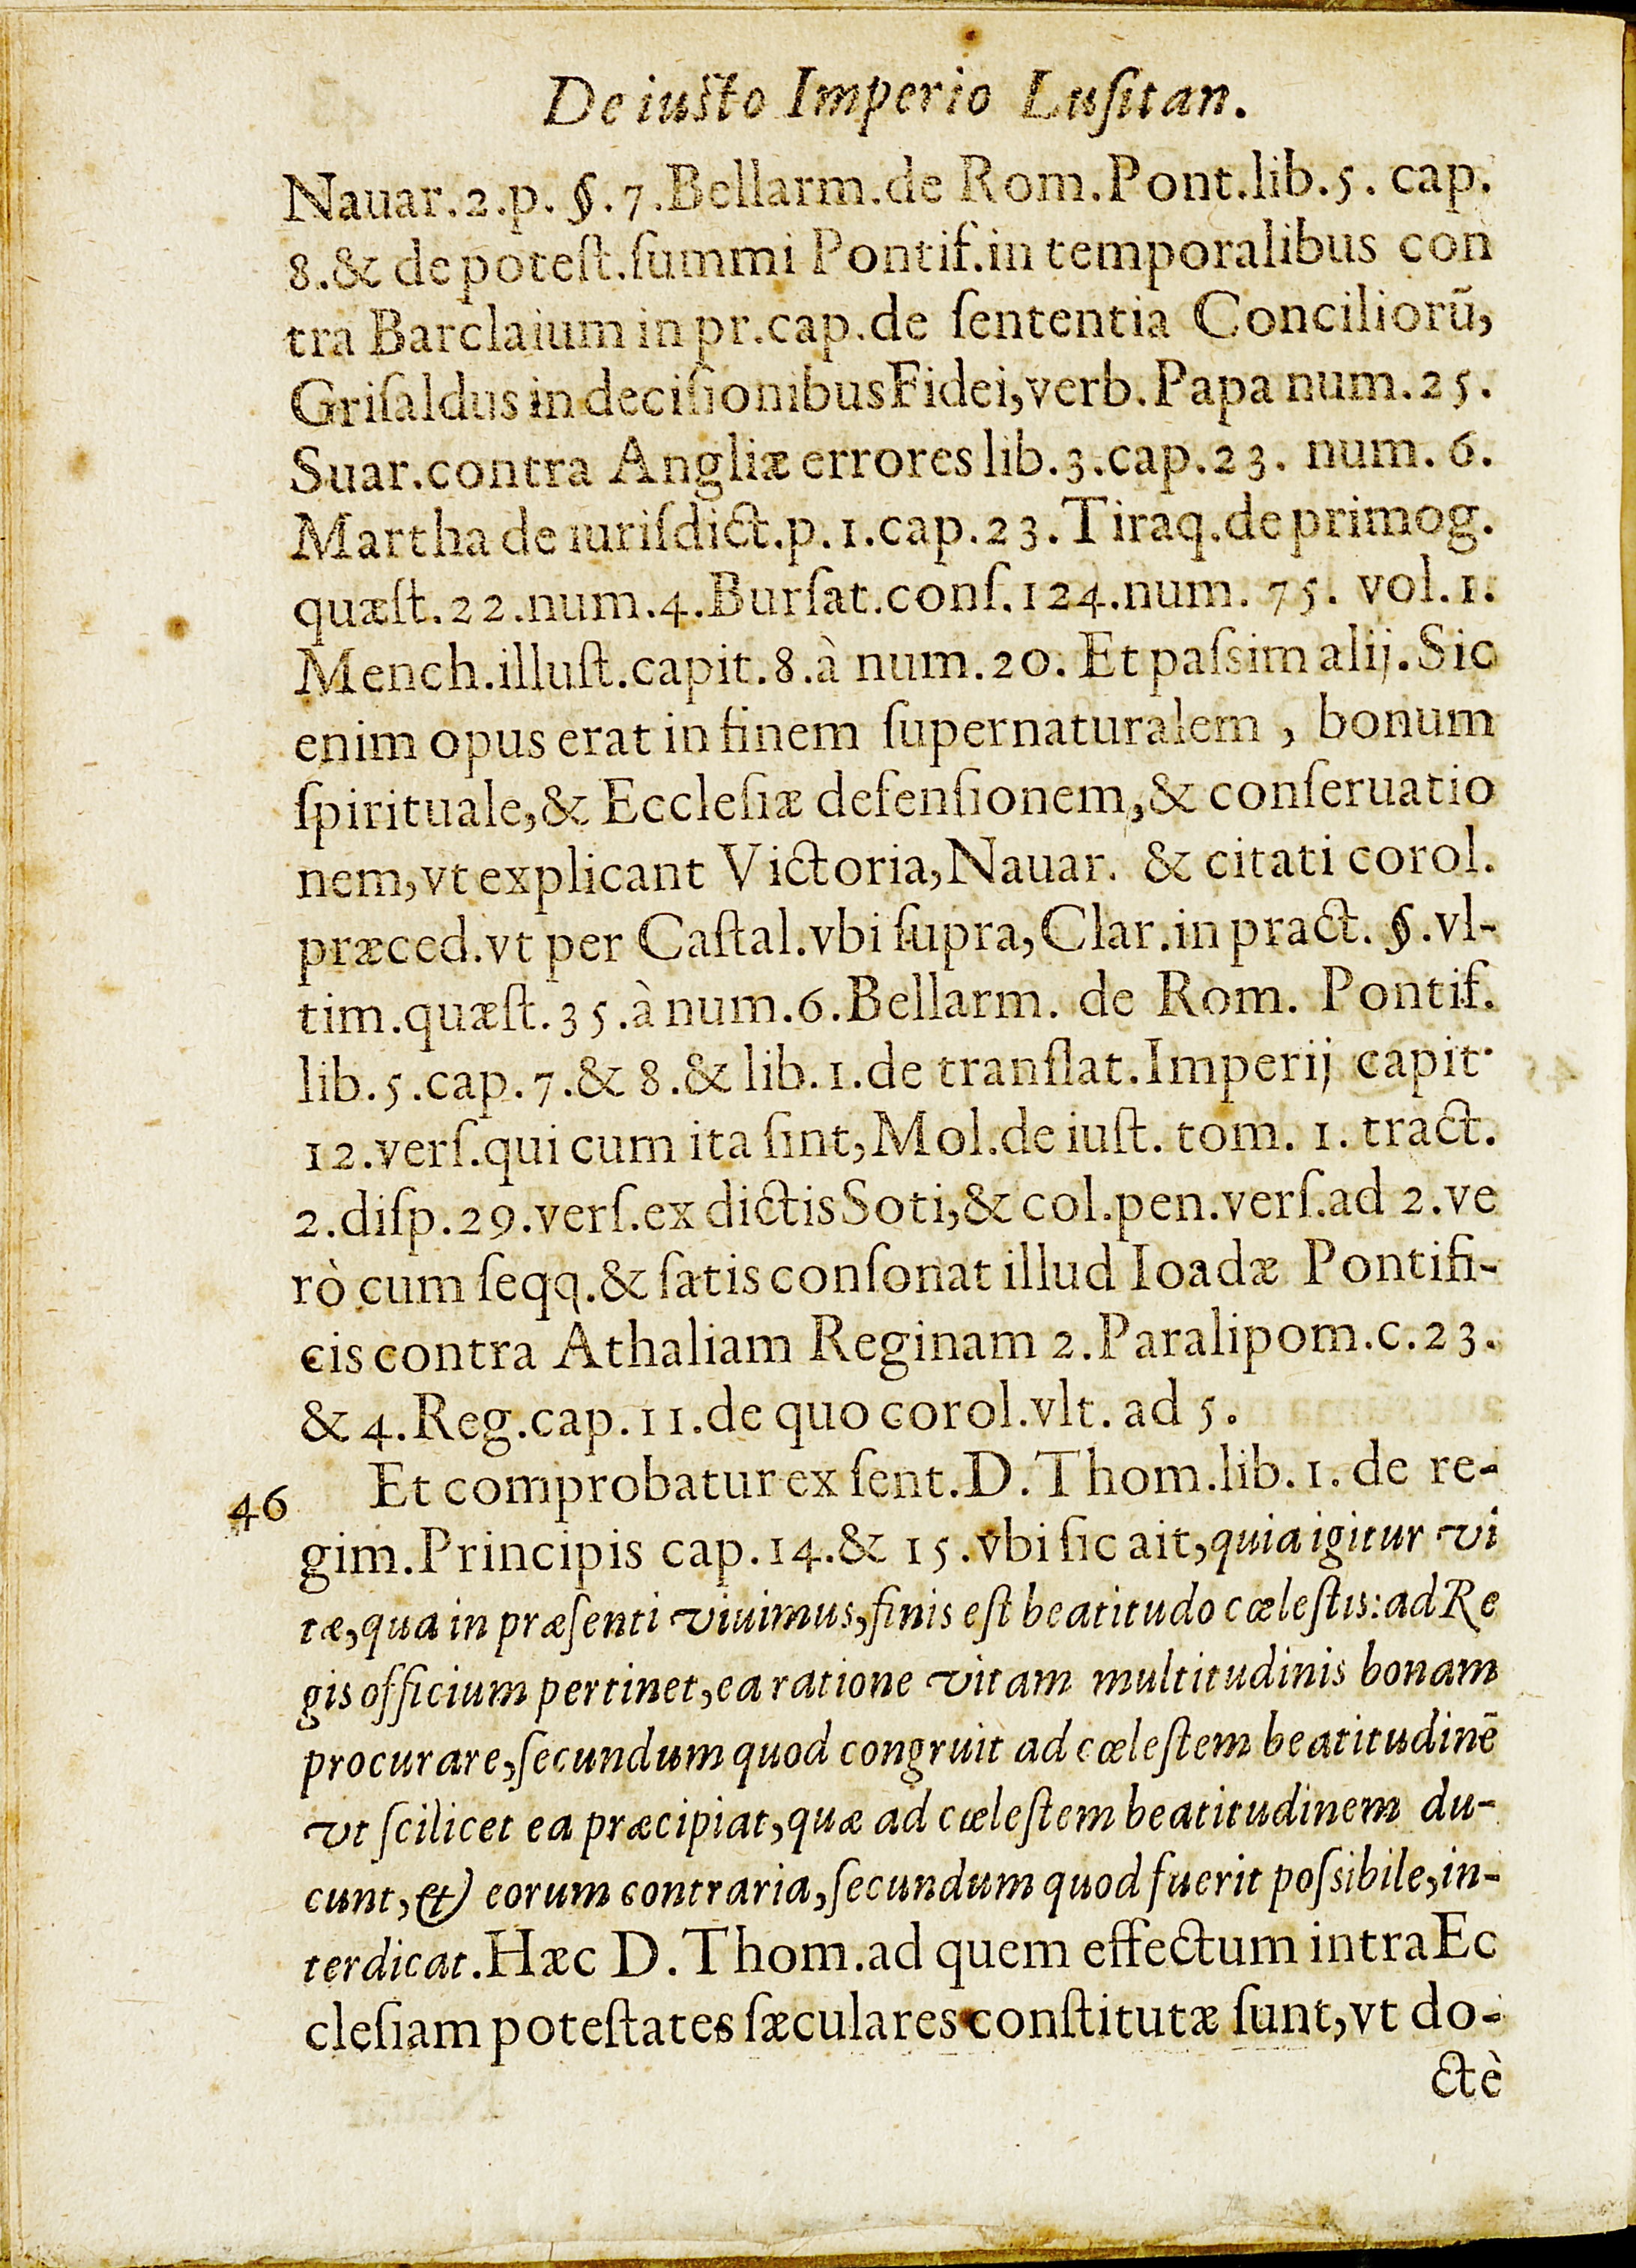 De iusto Imperio Luſitan.
Nauar.2.p. §.7.Bellarm.de Rom.Pont.lib.5. cap.
8.& de poteſt.ſummi Pontif.in temporalibus con
tra Barclaium in pr.cap.de ſententia Conciliorũ,
Griſaldus in deciſionibus Fidei,verb.Papa num.25.
Suar.contra Angliæ errores lib.3.cap.23. num.6.
Martha de iuriſdict.p.1.cap.23.Tiraq.de primog.
quæſt.22.num.4.Burſat.conſ.124.num. 75. vol.1.
Mench.illuſt.capit.8.à num.20. Et paſsim alij.Sic
enim opus erat in finem ſupernaturalem , bonum
ſpirituale,& Eccleſiæ defenſionem,& conſeruatio
nem,vt explicant Victoria,Nauar. & citati corol.
præced.vt per Caſtal.vbi ſupra,Clar.in pract. §.vl-
tim.quæſt.35.à num.6.Bellarm. de Rom. Pontif.
lib.5.cap.7.& 8.& lib.1.de tranſlat.Imperij capit·
12.verſ.qui cum ita ſint,Mol.de iuſt. tom. 1. tract.
2.diſp.29.verſ.ex dictis Soti,& col.pen.verſ.ad 2.ve
rò cum ſeqq.& ſatis conſonat illud Ioadæ Pontifi-
cis contra Athaliam Reginam 2.Paralipom.c.23.
& 4.Reg.cap.11.de quo corol.vlt. ad 5.
46 Et comprobatur ex ſent.D.Thom.lib.1. de re-
gim.Principis cap.14.& 15.vbi ſic ait,quia igitur vi
tæ,qua in præſenti viuimus,finis eſt beatitudo cœleſtis:ad Re
gis officium pertinet,ea ratione vitam multitudinis bonam
procurare,ſecundum quod congruit ad cœleſtem beatitudinē
vt ſcilicet ea præcipiat,quæ ad cœleſtem beatitudinem du-
cunt,& eorum contraria,ſecundum quod fuerit poſsibile,in-
terdicat.Hæc D.Thom.ad quem effectum intra Ec
cleſiam poteſtates ſæculares conſtitutæ ſunt,vt do-
ctè